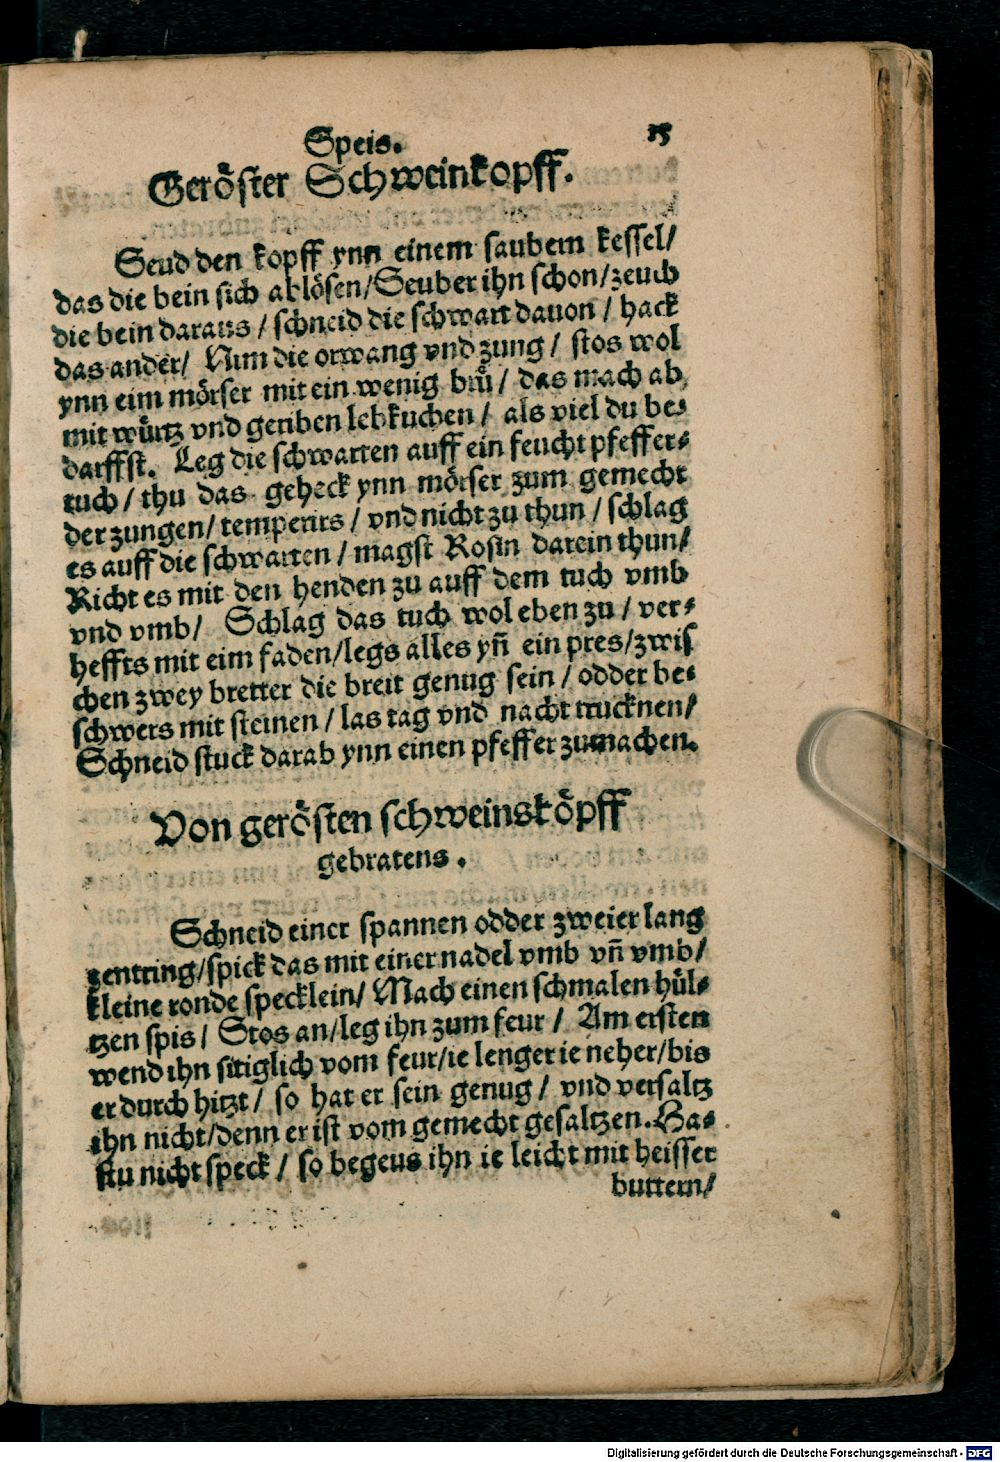 Speis. 15
Geröster Schweinkopff.
Seud den kopff ynn einem saubern kessel/
das die bein sich ablösen/Seuber ihn schon/zeuch
die bein daraus / schneid die schwart dauon / hack
das ander/ Nim die orwang vnd zung / stos wol
ynn eim mörser mit ein wenig brü / das mach ab
mit würtz vnd geriben lebkuchen / als viel du be-
darffst. Leg die schwarten auff ein feucht pfeffer-
tuch / thu das geheck ynn mörser zum gemecht
der zungen/ temperirs / vnd nicht zu thun / schlag
es auff die schwarten / magst Rosin darein thun/
Richt es mit den henden zu auff dem tuch vmb
vnd vmb/ Schlag das tuch wol eben zu / ver-
heffts mit eim faden/legs alles yñ ein pres/zwis
chen zwey bretter die breit genug sein / odder be-
schwers mit steinen / las tag vnd nacht trucknen/
Schneid stuck darab ynn einen pfeffer zumachen.
Von gerösten schweinsköpff
gebratens.
Schneid einer spannen odder zweier lang
zentring/spick das mit einer nadel vmb vñ vmb/
kleine ronde specklein/ Mach einen schmalen hül-
tzen spis / Stos an/leg ihn zum feur / Am ersten
wend ihn sitiglich vom feur/ie lenger ie neher/bis
er durch hitzt / so hat er sein genug / vnd versaltz
ihn nicht/denn er ist vom gemecht gesaltzen. Ha-
stu nicht speck / so begeus ihn ie leicht mit heisser
buttern/
Digitalisierung gefördert durch die Deutsche Forschungsgemeinschaft - DFG